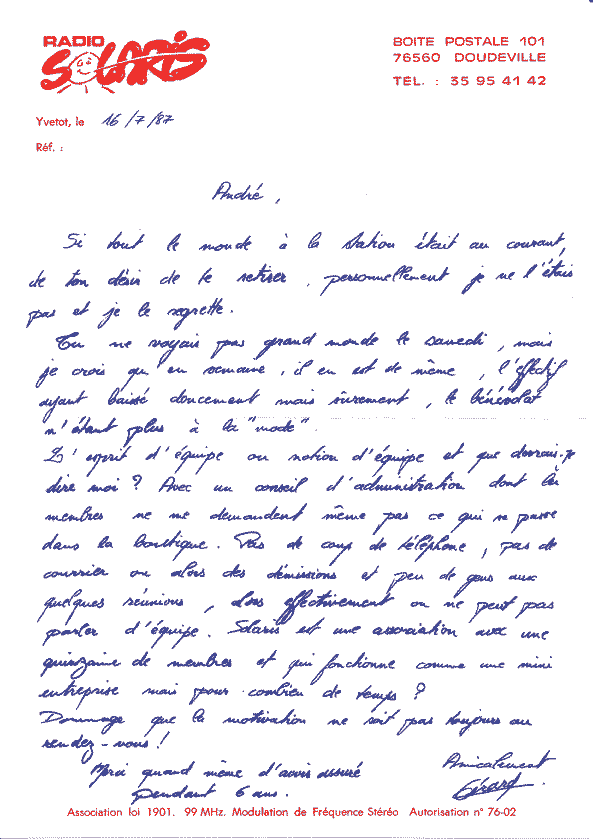 RADIO
SOLARIS
BOITE POSTALE 101
76560 DOUDEVILLE
TÉL. : 35 95 41 42
Yvetot, le 16/7/87
Réf. :
André,
Si tout le monde à la station était au courant,
de ton désir de te retirer, personnellement je ne l'étais
pas et je le regrette.
Tu ne voyais pas grand monde le samedi, mais
je crois qu'en semaine, il en est de même, l'effectif
ayant baissé doucement mais sûrement, le bénévolat
n'étant plus à la "mode".
L'esprit d'équipe ou notion d'équipe et que devrais-je
dire moi ? Avec un conseil d'administration dont les
membres ne me demandent même pas ce qui se passe
dans la boutique. Pas de coup de téléphone, pas de
courrier ou alors des démissions et peu de gens aux
quelques réunions, alors effectivement on ne peut pas
parler d'équipe. Solaris est une association avec une
quinzaine de membres et qui fonctionne comme une mini
entreprise mais pour combien de temps ?
Dommage que la motivation ne soit pas toujours au
rendez-vous !
Merci quand même d'avoir assuré
pendant 6 ans.
Amicalement
Gérard
Association loi 1901. 99 MHz. Modulation de Fréquence Stéréo Autorisation n° 76-02